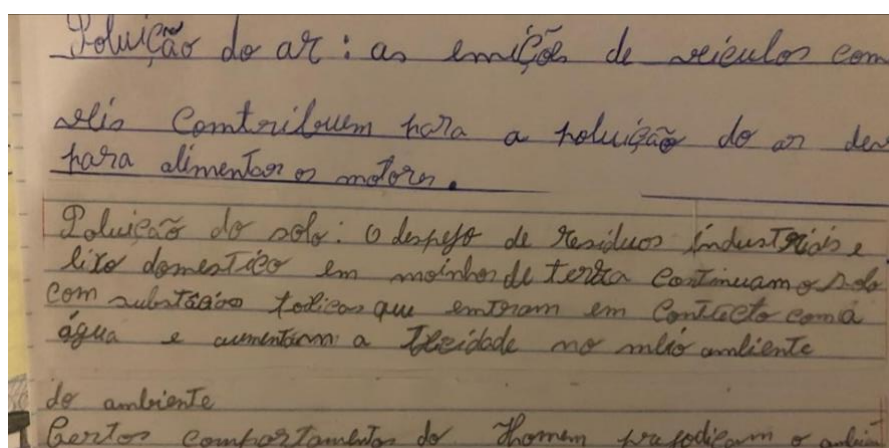 Poluição do ar: as emições de veículos com
veis Comtribuem para a poluição do ar dev
para alimentar os motores.
Poluicão do solo: O despejo de resíduos índustriais e
lixo domestico em moinhos de terra Continuam o solo
Com substâcias todicas que entram em Contacto com a
água e aumentam a Toxidade no meio ambiente
do ambiente
Certos comportamentos do Homem prejodicam o ambient